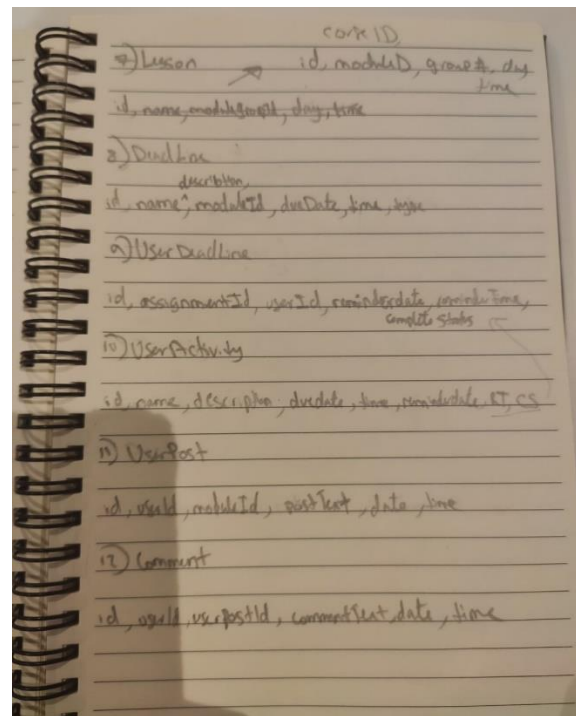 7) Lesson id, moduleID, group#, day
time
id, name, moduleGroupId, day, time
8) DeadLine
description,
id, name, moduleId, dueDate, time, type
9) UserDeadLine
id, assignmentId, userId, reminderdate, reminderTime,
complete status
10) UserActivity
id, name, description, duedate, time, reminderdate, RT, CS
11) UserPost
id, userId, moduleId, postText, date, time
12) Comment
id, userId, userPostId, commentText, date, time